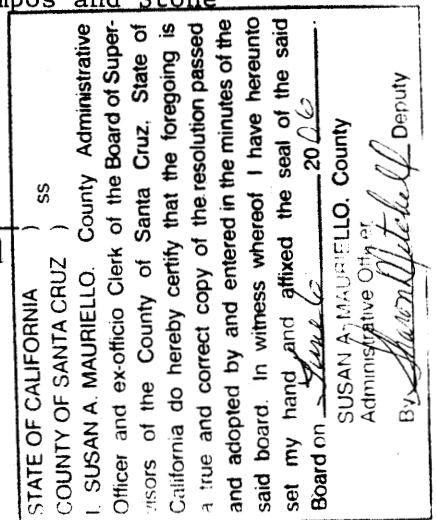 mpos and Stone
STATE OF CALIFORNIA ) ss
COUNTY OF SANTA CRUZ )
I. SUSAN A. MAURIELLO. County Administrative
Officer and ex-officio Clerk of the Board of Super-
visors of the County of Santa Cruz, State of
California do hereby certify that the foregoing is
a true and correct copy of the resolution passed
and adopted by and entered in the minutes of the
said board. In witness whereof I have hereunto
set my hand and affixed the seal of the said
Board on June 6 2006.
SUSAN A. MAURIELLO. County
Administrative Officer
By Sharon Mitchell Deputy